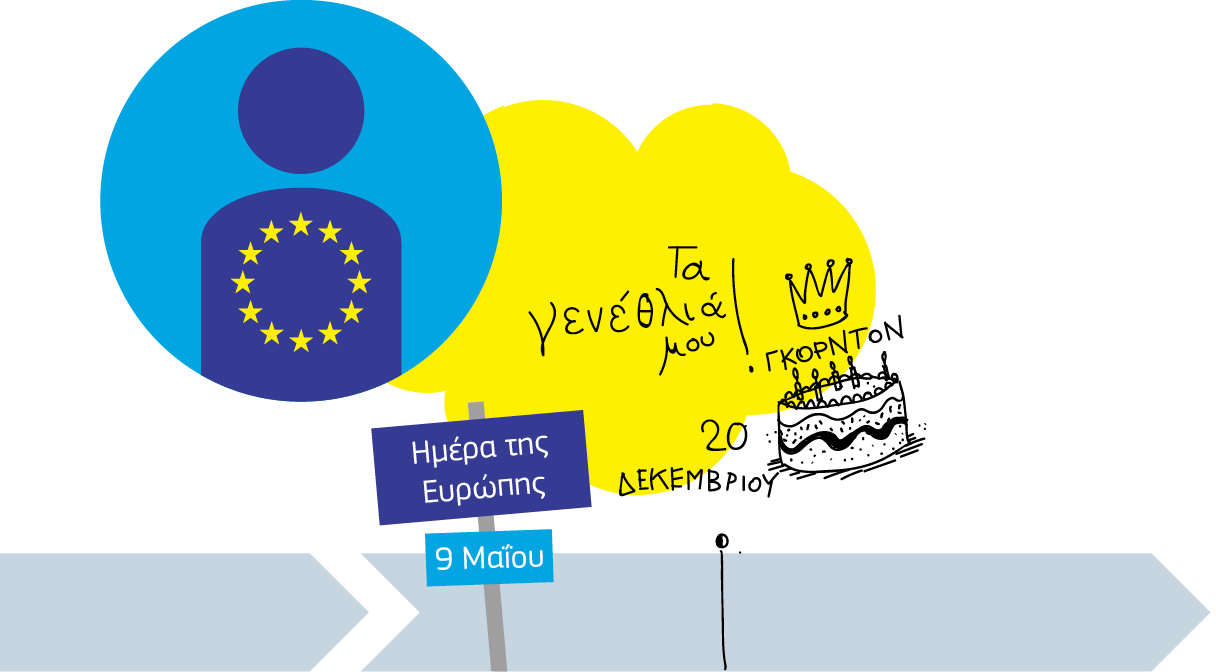 Τα
γενέθλιά
μου!
ΓΚΟΡΝΤΟΝ
20
ΔΕΚΕΜΒΡΙΟΥ
Ημέρα της
Ευρώπης
9 Μαΐου